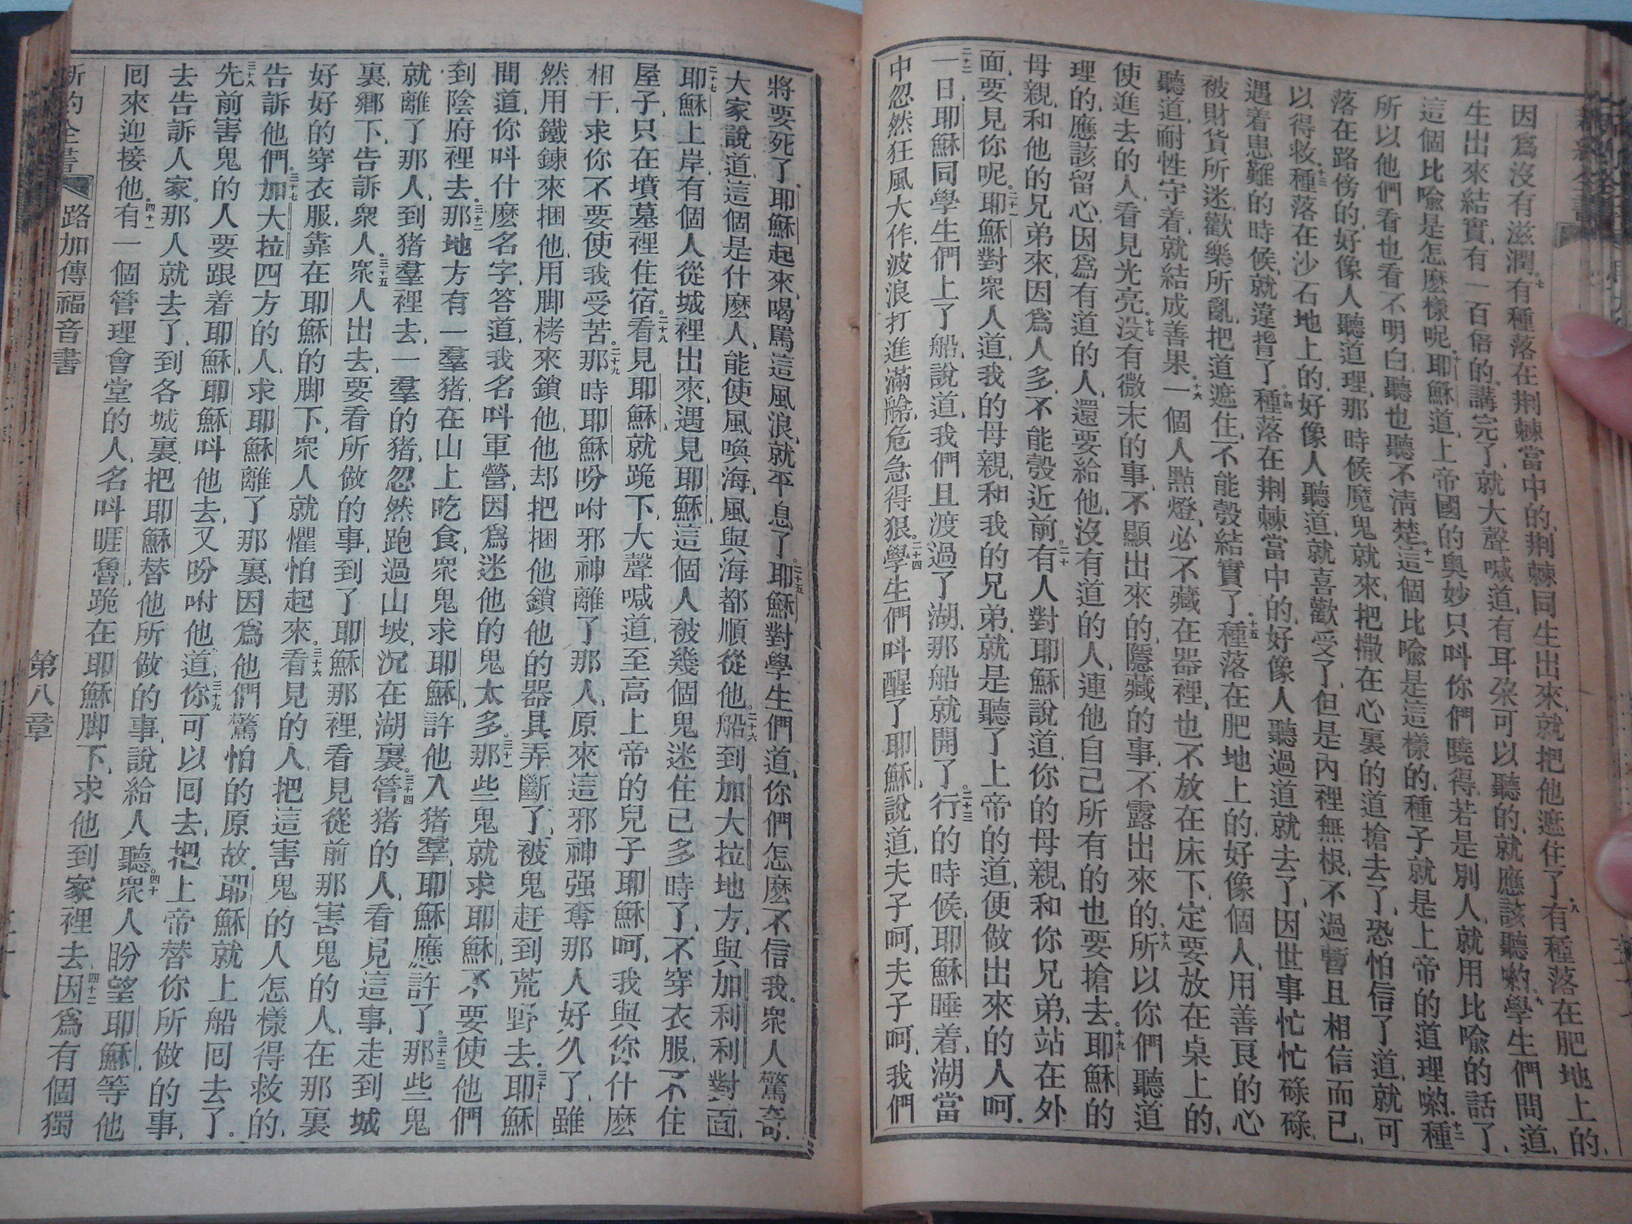 因爲沒有滋潤七有種落在荆棘當中的荆棘同生出來就把他遮住了八有種落在肥地上的
生出來結實有一百倍的講完了就大聲喊道有耳朶可以聽的就應該聽喲九學生們問道
這個比喻是怎麽樣呢十耶穌道上帝國的奥妙只呌你們曉得若是別人就用比喻的話了
所以他們看也看不明白聽也聽不清楚十一這個比喻是這樣的種子就是上帝的道理喲十二種
落在路傍的好像人聽道理那時候魔鬼就來把撒在心裏的道搶去了恐怕信了道就可
以得救十三種落在沙石地上的好像人聽道就喜歡受了但是內裡無根不過暫且相信而已
遇着患難的時候就違背了十四種落在荆棘當中的好像人聽過道就去了因世事忙忙碌碌
被財貨所迷歡樂所亂把道遮住不能彀結實了十五種落在肥地上的好像個人用善良的心
聽道耐性守着就結成善果十六一個人點燈必不藏在器裡也不放在床下定要放在桌上的
使進去的人看見光亮十七没有微末的事不顯出來的隱藏的事不露出來的十八所以你們聽道
理的應該留心因爲有道的人還要給他沒有道的人連他自己所有的也要搶去十九耶穌的
母親和他的兄弟來因爲人多不能彀近前二十有人對耶穌說道你的母親和你兄弟站在外
面要見你呢二十一耶穌對衆人道我的母親和我的兄弟就是聽了上帝的道便做出來的人呵
二十二一日耶穌同學生們上了船說道我們且渡過了湖那船就開了二十三行的時候耶穌睡着湖當
中忽然狂風大作波浪打進滿艙危急得狠二十四學生們呌醒了耶穌說道夫子呵夫子呵我們
將要死了耶穌起來喝罵這風浪就平息了二十五耶穌對學生們道你們怎麽不信我衆人驚奇
大家說道這個是什麽人能使風喚海風與海都順從他二十六船到加大拉地方與加利利對面
二十七耶穌上岸有個人從城裡出來遇見耶穌這個人被幾個鬼迷住已多時了不穿衣服不住
屋子只在墳墓裡住宿二十八看見耶穌就跪下大聲喊道至高上帝的兒子耶穌呵我與你什麽
相干求你不要使我受苦二十九那時耶穌吩咐邪神離了那人原來這邪神强奪那人好久了雖
然用鐵鍊來捆他用脚栲來鎖他他却把捆他鎖他的器具弄斷了被鬼赶到荒野去三十耶穌
問道你呌什麽名字答道我名呌軍營因爲迷他的鬼太多三十一那些鬼就求耶穌不要使他們
到陰府裡去三十二那地方有一羣猪在山上吃食衆鬼求耶穌許他入猪羣耶穌應許了三十三那些鬼
就離了那人到猪羣裡去一羣的猪忽然跑過山坡沉在湖裏三十四管猪的人看見這事走到城
裏鄉下告訴衆人三十五衆人出去要看所做的事到了耶穌那裡看見從前那害鬼的人在那裏
好好的穿衣服靠在耶穌的脚下衆人就懼怕起來三十六看見的人把這害鬼的人怎樣得救的
告訴他們三十七加大拉四方的人求耶穌離了那裏因爲他們驚怕的原故耶穌就上船囘去了
三十八先前害鬼的人要跟着耶穌耶穌呌他去又吩咐他道三十九你可以囘去把上帝替你所做的事
去告訴人家那人就去了到各城裏把耶穌替他所做的事說給人聽四十衆人盼望耶穌等他
囘來迎接他四十一有一個管理會堂的人名呌睚魯跪在耶穌脚下求他到家裡去四十二因爲有個獨
新約全書 路加傳福音書 第八章